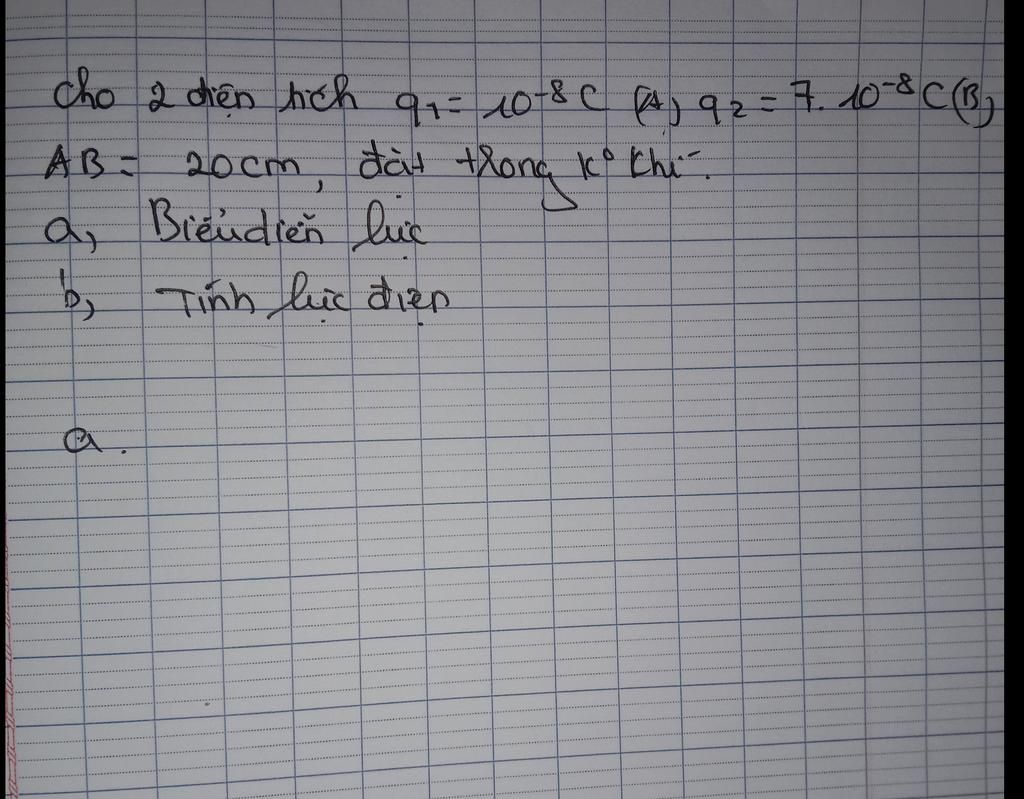 Cho 2 điện tích q1 = 10^-8 C (A), q2 = 7. 10^-8 C (B),
AB = 20cm, đặt trong k° khí.
a, Biểu diễn lực
b, Tính lực điện
a.